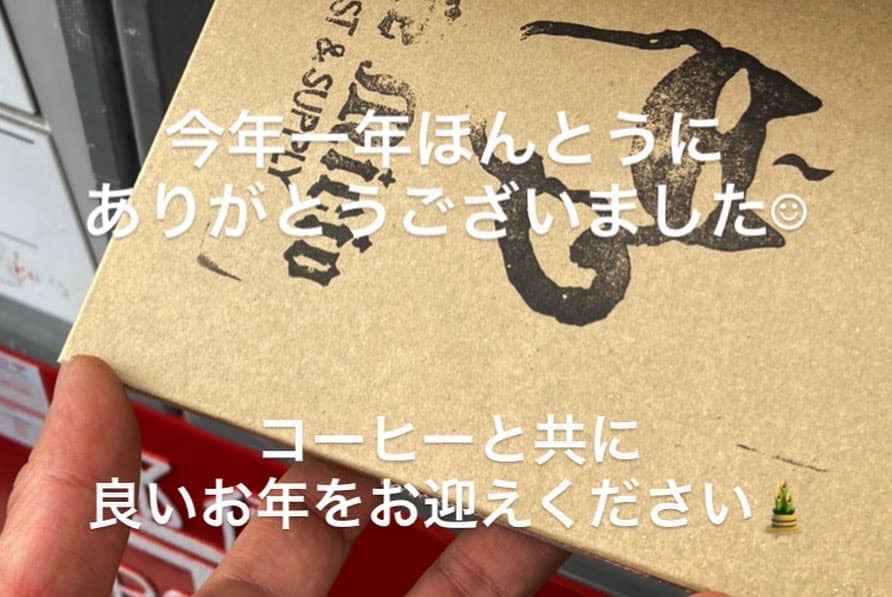 今年一年ほんとうに
ありがとうございました☺
コーヒーと共に
良いお年をお迎えください🎍
Mitto
ST & SUPPLY